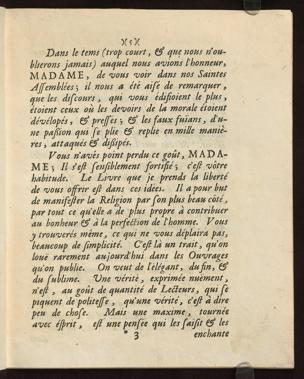 )( 5 )(
Dans le tems (trop court, & que nous n'ou-
blierons jamais) auquel nous avions l'honneur,
MADAME, de vous voir dans nos Saintes
Assemblées; il nous a été aisé de remarquer,
que les discours, qui vous édifioient le plus,
étoient ceux où les devoirs de la morale étoient
dévelopés, & pressés; & les faux fuïans, d'u-
ne passion qui se plie & replie en mille maniè-
res, attaqués & dissipés.
Vous n'avés point perdu ce goût, MADA-
ME; Il s'est sensiblement fortifié; c'est vôtre
habitude. Le Livre que je prends la liberté
de vous offrir est dans ces idées. Il a pour but
de manifester la Religion par son plus beau côté,
par tout ce qu'elle a de plus propre à contribuer
au bonheur & à la perfection de l'homme. Vous
y trouverés même, ce qui ne vous déplaira pas,
beaucoup de simplicité. C'est là un trait, qu'on
loue rarement aujourd'hui dans les Ouvrages
qu'on publie. On veut de l'élégant, du fin, &
du sublime. Une vérité, exprimée nuëment,
n'est, au goût de quantité de Lecteurs, qui se
piquent de politesse, qu'une vérité, c'est à dire
peu de chose. Mais une maxime, tournée
avec ésprit, est une pensée qui les saisit & les
* 3 enchante